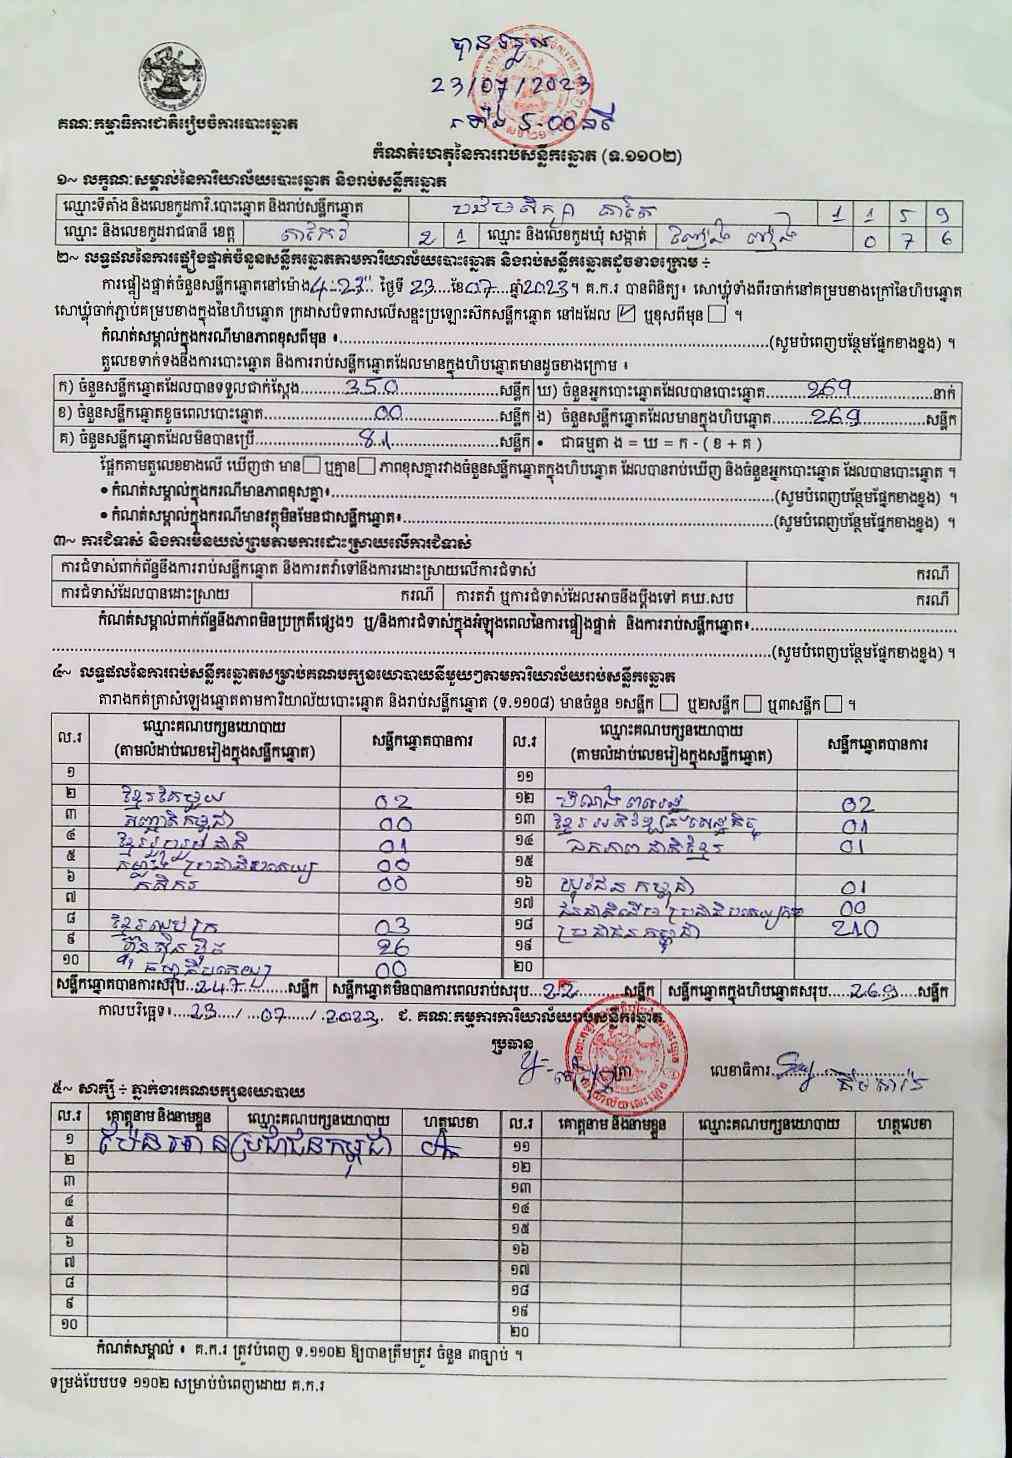 បានទទួល
23/07/2023
ម៉ោង 5:00 នាទី
គណៈកម្មាធិការជាតិរៀបចំការបោះឆ្នោត
កំណត់ហេតុនៃការរាប់សន្លឹកឆ្នោត (ទ.១១០២)
១~ លក្ខណៈសម្គាល់នៃការិយាល័យបោះឆ្នោត និងរាប់សន្លឹកឆ្នោត
ឈ្មោះទីតាំង និងលេខកូដការិ.បោះឆ្នោត និងរាប់សន្លឹកឆ្នោត 1 1 5 9
ឈ្មោះ និងលេខកូដរាជធានី ខេត្ត តាកែវ 2 1 ឈ្មោះ និងលេខកូដឃុំ សង្កាត់ 0 7 6
២~ លទ្ធផលនៃការផ្ទៀងផ្ទាត់ចំនួនសន្លឹកឆ្នោតតាមការិយាល័យបោះឆ្នោត និងរាប់សន្លឹកឆ្នោតដូចខាងក្រោម ÷
ការផ្ទៀងផ្ទាត់ចំនួនសន្លឹកឆ្នោតនៅម៉ោង 4:23 ថ្ងៃទី 23 ខែ 07 ឆ្នាំ 2023។ គ.ក.រ បានពិនិត្យ៖ សោឃ្លុំទាំងពីរចាក់នៅគម្របខាងក្រៅនៃហិបឆ្នោត
សោឃ្លុំចាក់ភ្ជាប់គម្របខាងក្នុងនៃហិបឆ្នោត ក្រដាសបិទពាសលើសន្ទះប្រឡោះសឹកសន្លឹកឆ្នោត នៅដដែល ☑ ឬខុសពីមុន ☐ ។
កំណត់សម្គាល់ក្នុងករណីមានភាពខុសពីមុន ៖ (សូមបំពេញបន្ថែមផ្នែកខាងខ្នង) ។
តួលេខទាក់ទងនឹងការបោះឆ្នោត និងការរាប់សន្លឹកឆ្នោតដែលមានក្នុងហិបឆ្នោតមានដូចខាងក្រោម ៖
ក) ចំនួនសន្លឹកឆ្នោតដែលបានទទួលជាក់ស្តែង 350 សន្លឹក ឃ) ចំនួនអ្នកបោះឆ្នោតដែលបានបោះឆ្នោត 269 នាក់
ខ) ចំនួនសន្លឹកឆ្នោតខូចពេលបោះឆ្នោត 00 សន្លឹក ង) ចំនួនសន្លឹកឆ្នោតដែលមានក្នុងហិបឆ្នោត 269 សន្លឹក
គ) ចំនួនសន្លឹកឆ្នោតដែលមិនបានប្រើ 81 សន្លឹក • ជាធម្មតា ង = ឃ = ក - ( ខ + គ )
ផ្អែកតាមតួលេខខាងលើ ឃើញថា មាន ☐ ឬគ្មាន ☐ ភាពខុសគ្នារវាងចំនួនសន្លឹកឆ្នោតក្នុងហិបឆ្នោត ដែលបានរាប់ឃើញ និងចំនួនអ្នកបោះឆ្នោត ដែលបានបោះឆ្នោត ។
• កំណត់សម្គាល់ក្នុងករណីមានភាពខុសគ្នា៖ (សូមបំពេញបន្ថែមផ្នែកខាងខ្នង) ។
• កំណត់សម្គាល់ក្នុងករណីមានវត្ថុមិនមែនជាសន្លឹកឆ្នោត៖ (សូមបំពេញបន្ថែមផ្នែកខាងខ្នង) ។
៣~ ការជំទាស់ និងការមិនយល់ព្រមតាមការដោះស្រាយលើការជំទាស់
ការជំទាស់ពាក់ព័ន្ធនឹងការរាប់សន្លឹកឆ្នោត និងការតវ៉ាទៅនឹងការដោះស្រាយលើការជំទាស់ ករណី
ការជំទាស់ដែលបានដោះស្រាយ ករណី ការតវ៉ា ឬការជំទាស់ដែលអាចនឹងប្តឹងទៅ គឃ.សប ករណី
កំណត់សម្គាល់ពាក់ព័ន្ធនឹងភាពមិនប្រក្រតីផ្សេងៗ ឬ/និងការជំទាស់ក្នុងអំឡុងពេលនៃការផ្ទៀងផ្ទាត់ និងការរាប់សន្លឹកឆ្នោត៖
(សូមបំពេញបន្ថែមផ្នែកខាងខ្នង) ។
៤~ លទ្ធផលនៃការរាប់សន្លឹកឆ្នោតសម្រាប់គណបក្សនយោបាយនីមួយៗតាមការិយាល័យរាប់សន្លឹកឆ្នោត
តារាងកត់ត្រាសំឡេងឆ្នោតតាមការិយាល័យបោះឆ្នោត និងរាប់សន្លឹកឆ្នោត (ទ.១១០៨) មានចំនួន ១សន្លឹក ☐ ឬ២សន្លឹក ☐ ឬ៣សន្លឹក ☐ ។
ល.រ ឈ្មោះគណបក្សនយោបាយ (តាមលំដាប់លេខរៀងក្នុងសន្លឹកឆ្នោត) សន្លឹកឆ្នោតបានការ ល.រ ឈ្មោះគណបក្សនយោបាយ (តាមលំដាប់លេខរៀងក្នុងសន្លឹកឆ្នោត) សន្លឹកឆ្នោតបានការ
១ ១១
២ ខ្មែរតែមួយ 02 ១២ 02
៣ 00 ១៣ ខ្មែរអភិវឌ្ឍន៍សេដ្ឋកិច្ច 01
៤ ខ្មែររួបរួមជាតិ 01 ១៤ ឯកភាពជាតិខ្មែរ 01
៥ កម្លាំងប្រជាធិបតេយ្យ 00 ១៥
៦ កសិករ 00 ១៦ យុវជនកម្ពុជា 01
៧ ១៧ 00
៨ ខ្មែរឈប់ក្រ 03 ១៨ ប្រជាជនកម្ពុជា 210
៩ ហ៊្វុនស៊ិនប៉ិច 26 ១៩
១០ 00 ២០
សន្លឹកឆ្នោតបានការសរុប 247 សន្លឹក សន្លឹកឆ្នោតមិនបានការពេលរាប់សរុប 22 សន្លឹក សន្លឹកឆ្នោតក្នុងហិបឆ្នោតសរុប 269 សន្លឹក
កាលបរិច្ឆេទ៖ 23 / 07 / 2023 ជ. គណៈកម្មការការិយាល័យរាប់សន្លឹកឆ្នោត
ប្រធាន
លេខាធិការ
៥~ សាក្សី ÷ ភ្នាក់ងារគណបក្សនយោបាយ
ល.រ គោត្តនាម និងនាមខ្លួន ឈ្មោះគណបក្សនយោបាយ ហត្ថលេខា ល.រ គោត្តនាម និងនាមខ្លួន ឈ្មោះគណបក្សនយោបាយ ហត្ថលេខា
១ ប្រជាជនកម្ពុជា ១១
២ ១២
៣ ១៣
៤ ១៤
៥ ១៥
៦ ១៦
៧ ១៧
៨ ១៨
៩ ១៩
១០ ២០
កំណត់សម្គាល់ ៖ គ.ក.រ ត្រូវបំពេញ ទ.១១០២ ឱ្យបានត្រឹមត្រូវ ចំនួន ៣ច្បាប់ ។
ទម្រង់បែបបទ ១១០២ សម្រាប់បំពេញដោយ គ.ក.រ